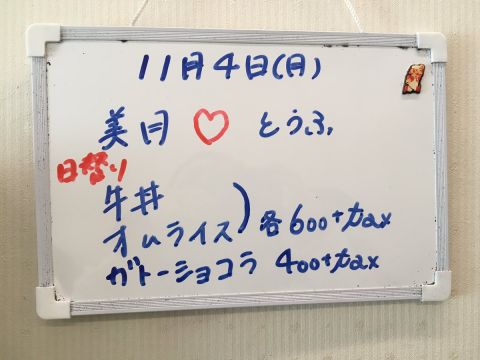 11月4日(月)
美月♡とうふ
日替り
牛丼
オムライス)各600+tax
ガトーショコラ 400+tax